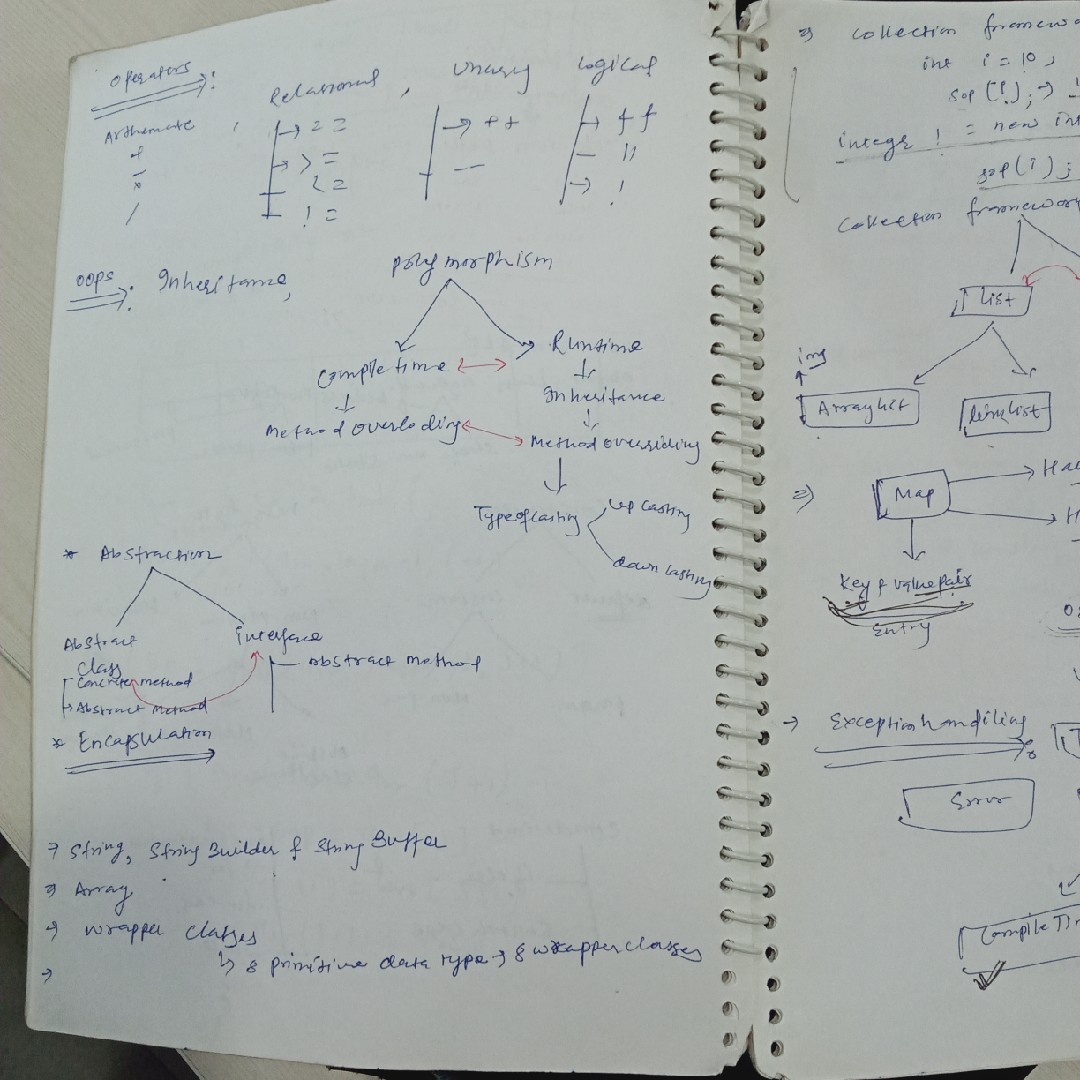 Operators:
Arthemate, Relational, Unary Logical
+ → == → ++ ff
- → >= -- ||
* <= → !
/ !=
OOPS: Inheritance, Polymorphism
Completime ↔ Runtime
Inheritance
Method overloading ↔ Method overriding
Type of casting
Up casting
down casting
* Abstraction
Abstract class
Concrete method
→ Abstract Method
interface
Abstract Method
* Encapsulation
→ String, String Builder f String Buffer
→ Array
→ wrapper classes
↳ 8 primitive data type → 8 wrapper classes
→
⇒ Collection framewo
int i = 10;
sop(i); →
integr i = new int
sop(i);
Collection framewor
List
ing
Arraylist linklist
⇒ Map → Ha
→ H
Key f value pair
Entry
→ Exception handiling:
Error
Compile Tim